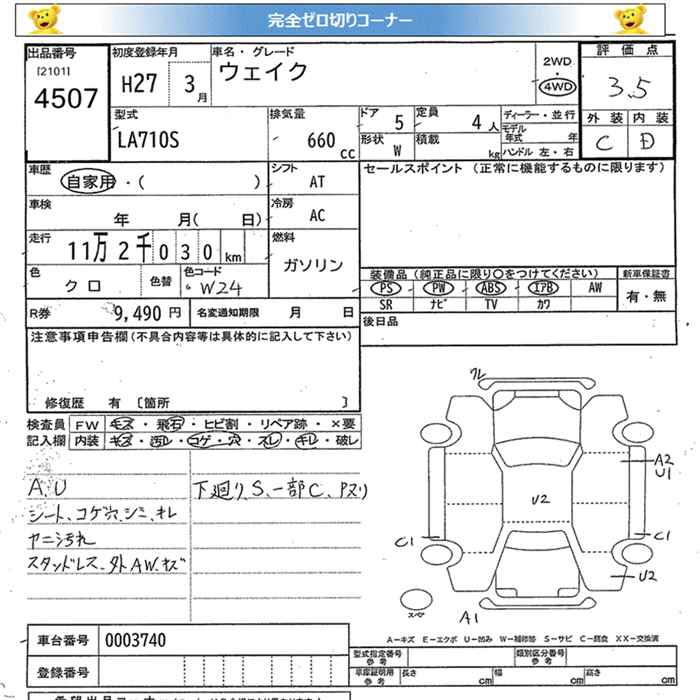 完全ゼロ切りコーナー
出品番号
[2101]
4507
初度登録年月
H27 3月
車名・グレード
ウェイク
2WD
4WD
評価点
3.5
外装 内装
C D
型式
LA710S
排気量
660 cc
ドア 5
形状 W
定員 4人
積載 kg
ディーラー・並行
モデル年式 年
ハンドル 左・右
車歴
自家用・( )
シフト
AT
セールスポイント (正常に機能するものに限ります)
車検
年 月( 日)
冷房
AC
走行
11万2千030km
燃料
ガソリン
色
クロ
色替
色コード
W24
装備品(純正品に限り○をつけてください)
新車保証書
PS PW ABS エアB AW
有・無
SR ナビ TV カワ
R券 9,490円
名変通知期限 月 日
後日品
注意事項申告欄(不具合内容等は具体的に記入して下さい)
修復歴 有 [箇所 ]
検査員記入欄
FW キズ・飛石・ヒビ割・リペア跡・×要
内装 キズ・汚レ・コゲ・穴・スレ・キレ・破レ
A、U
下廻りS、一部C、Pヌリ
シート、コゲ穴、シミ、キレ
ヤニ汚れ
スタッドレス、外AW、キズ
クレ
A2
U1
U2
C1
C1
U2
スペア
A1
車台番号 0003740
登録番号
A－キズ E－エクボ U－凹み W－補修跡 S－サビ C－腐食 XX－交換済
型式指定番号 参考
類別区分番号 参考
車庫証明用 参考 長さ cm 幅 cm 高さ cm